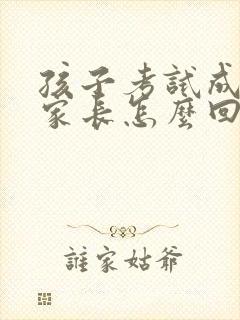 孩子考試成
家長怎麼回
誰家姑爺